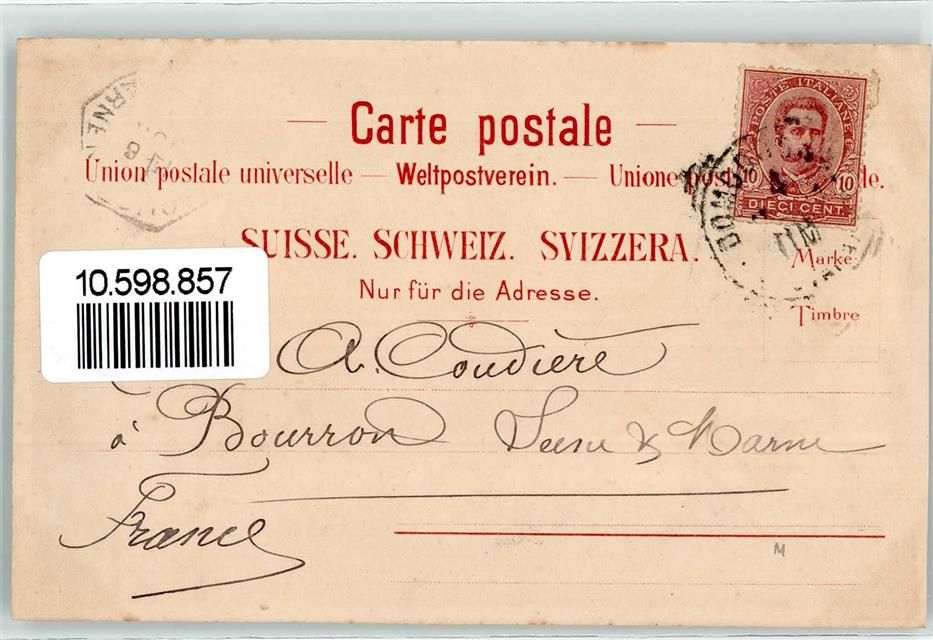 Carte postale
Union postale universelle — Weltpostverein. — Unione
SUISSE. SCHWEIZ. SVIZZERA.
Nur für die Adresse.
POSTE ITALIANE
10 10
DIECI CENT.
Marke
Timbre
10.598.857
A. Coudière
à Bourron Seine & Marne
France
M